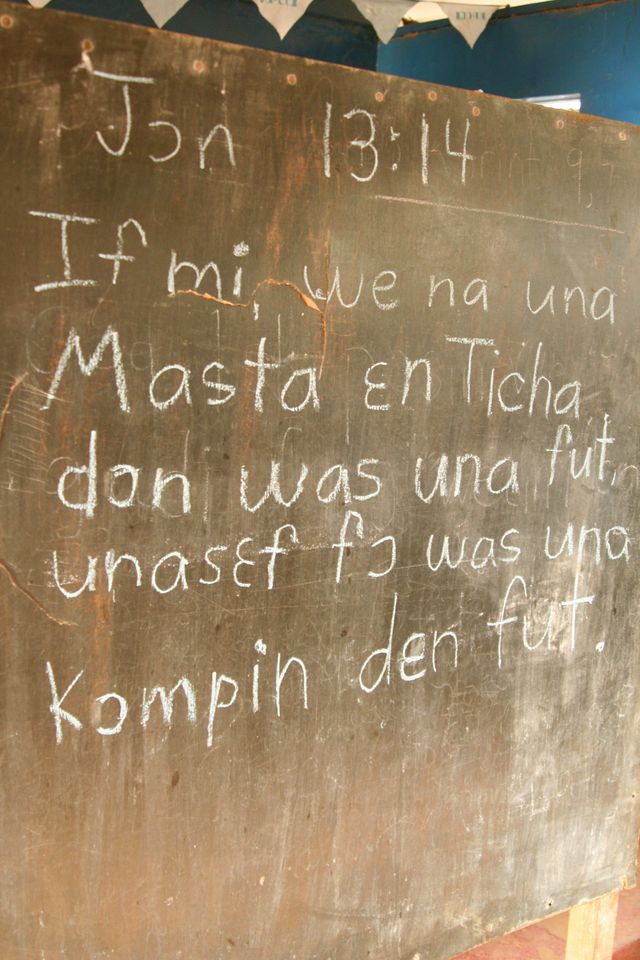 Jɔn 13:14
If mi, we na una
Masta ɛn Ticha,
dɔn was una fut,
unasɛf fɔ was una
Kɔmpin dɛn fut.